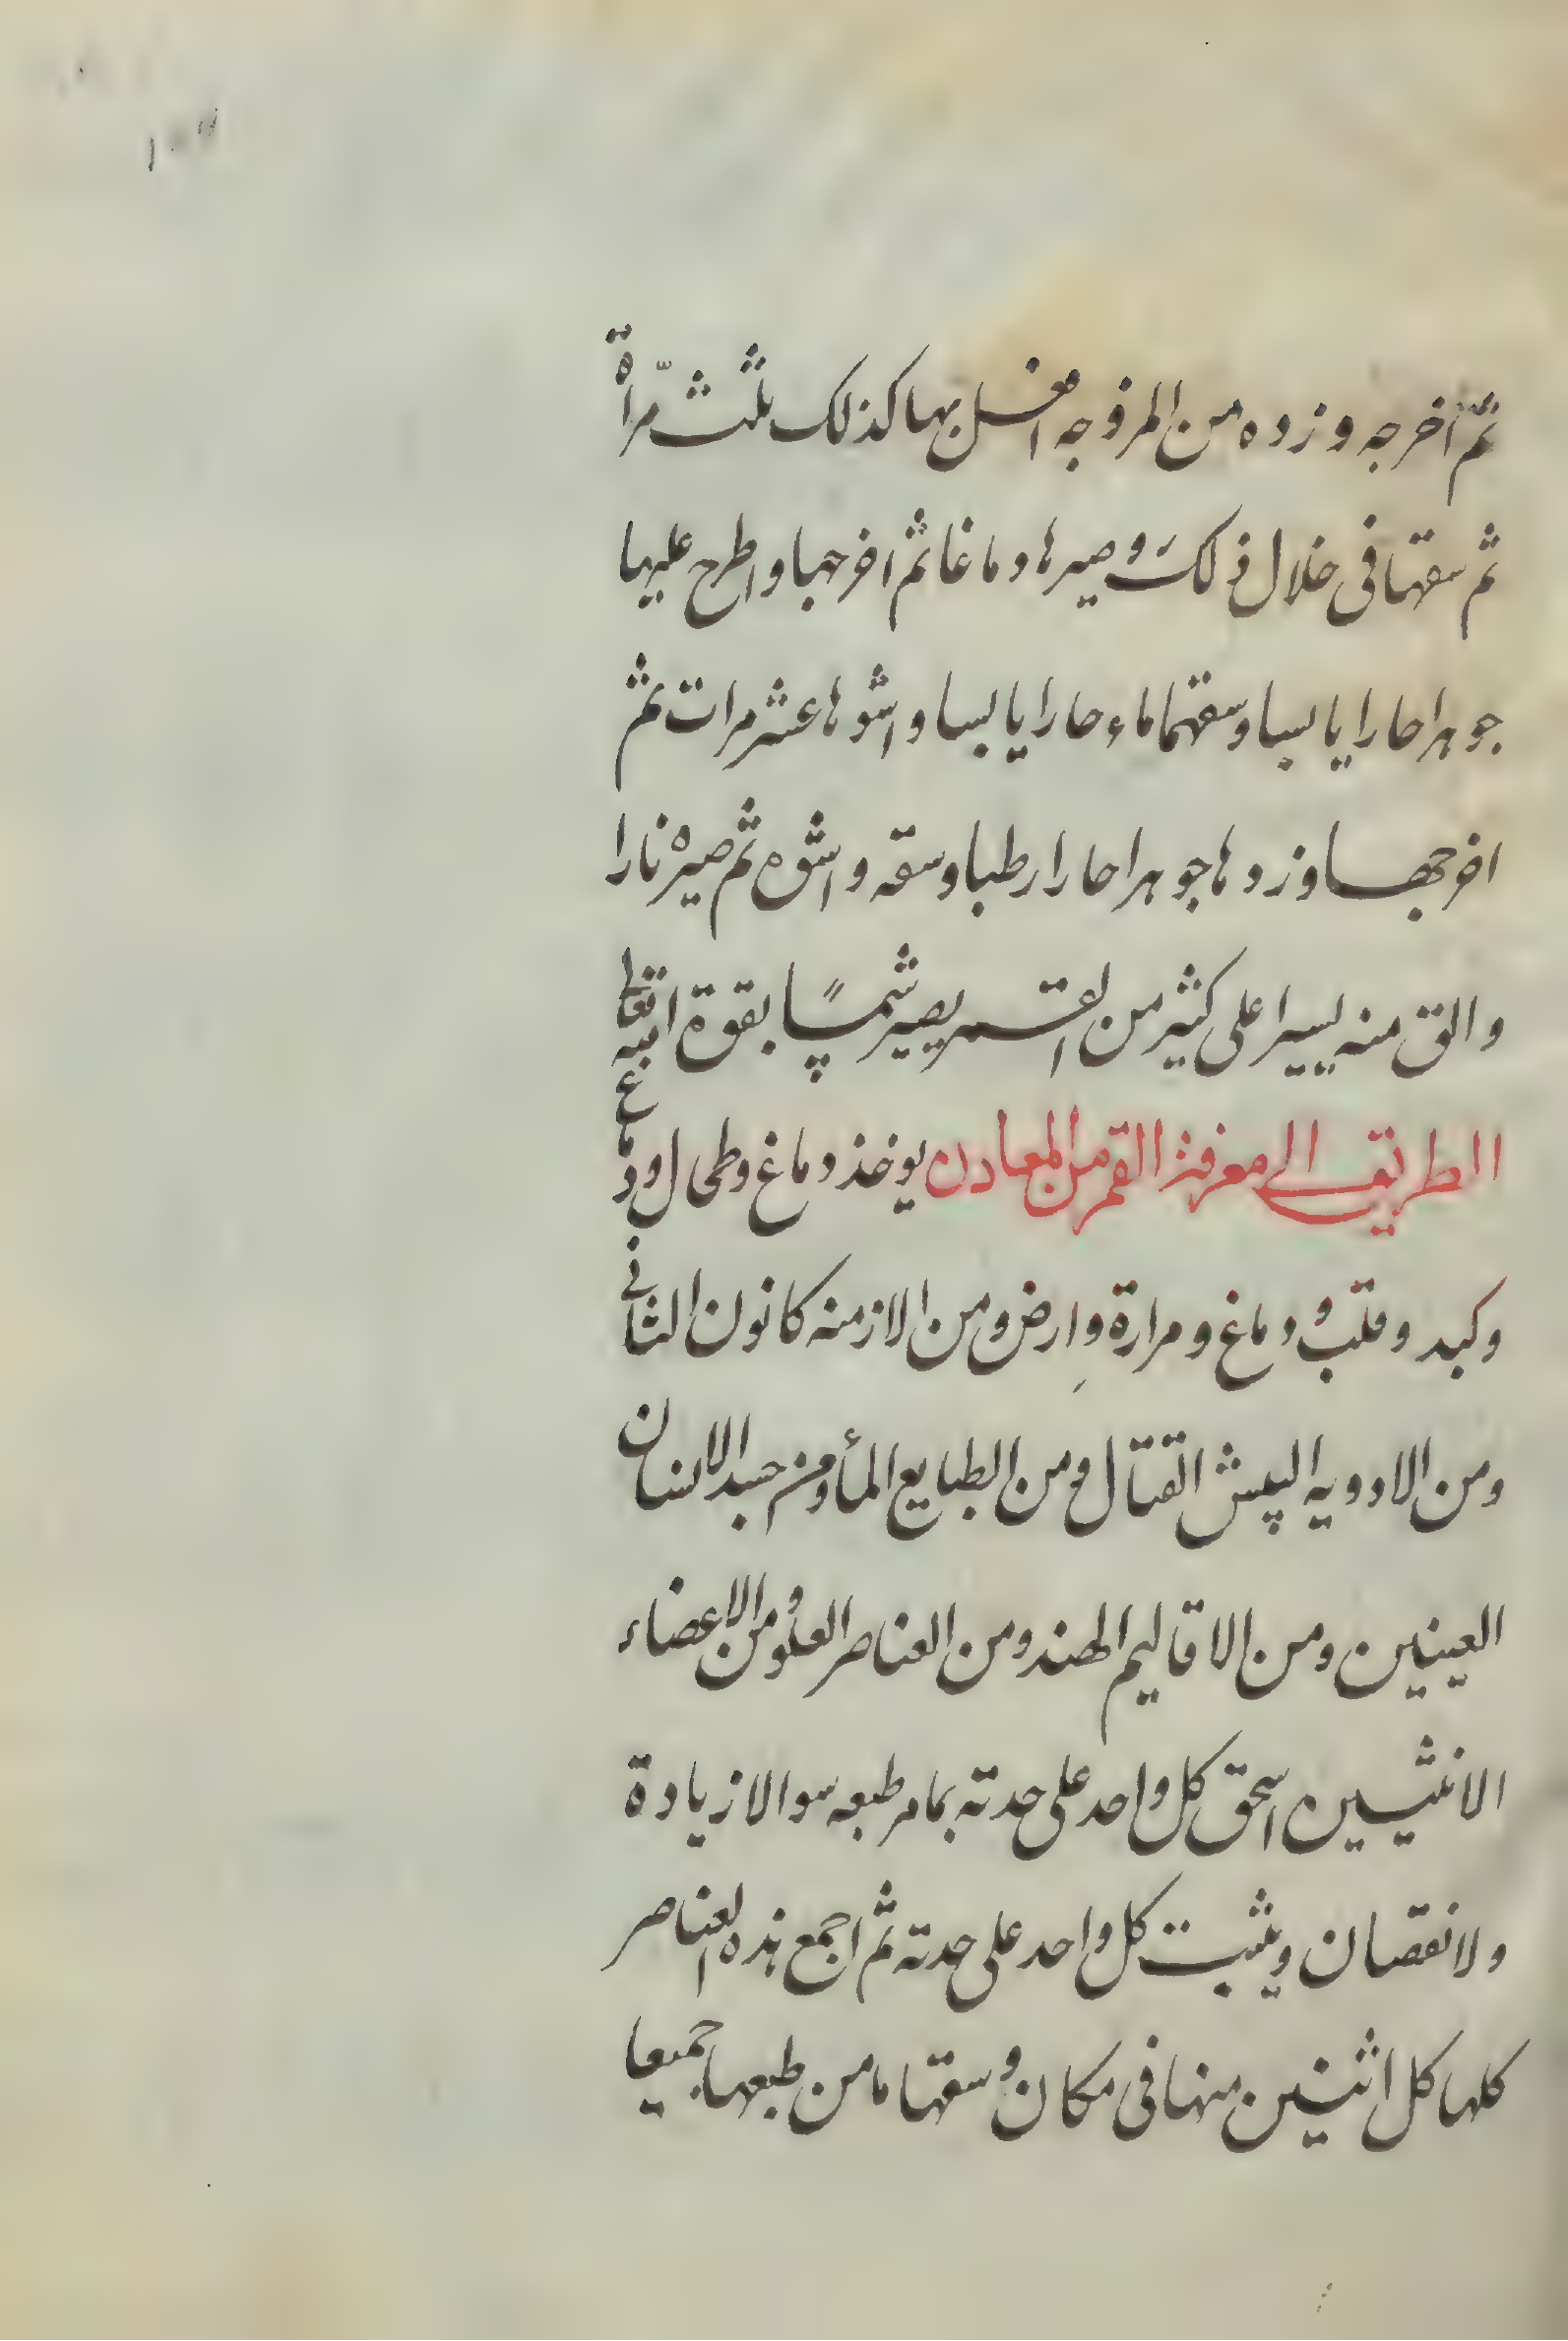 ثم أخرجه وزده من المزوجه افعل بها كذلك ثلث مرّاة
ثم سقها فى خلال ذلك وصيرها دماغا ثم اخرجها واطرح عليها
جوهرا حارا يابسا وسقهما ماء حارا يابسا واشوها عشر مرات ثم
اخرجها وزدها جوهرا حارا رطبا وسقه واشوه ثم صيره نارا
والق منه يسيرا على كثير من القمر يصير شمساً بقوة الله تعالى
الطريق الى معرفة القمر من المعادن يوخذ دماغ وطحال
وكبد وقلب ودماغ ومرارة وارض ومن الازمنه كانون الثانى
ومن الادويه البيش القتال ومن الطبايع الماء ومن جسد الانسان
العينين ومن الاقاليم الهند ومن العناصر العلو ومن الاعضاء
الانثيين اسحق كل واحد على حدته بماء من طبعه سوا لا زيادة
ولا نقصان ويثبت كل واحد على حدته ثم اجمع هذه العناصر
كلها كل اثنين منها فى مكان وسقها ما من طبعها جميعا